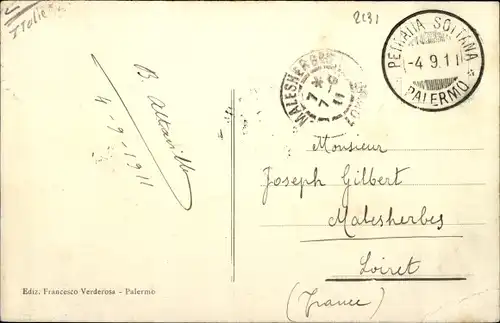 Italie
2131
PETRALIA SOTTANA
-4.9.11
PALERMO
MALESHERBES
7 * 7
11
B. Altavilla
4-9-1911
Monsieur
Joseph Gilbert
Malesherbes
Loiret
(France)
Ediz. Francesco Verderosa - Palermo